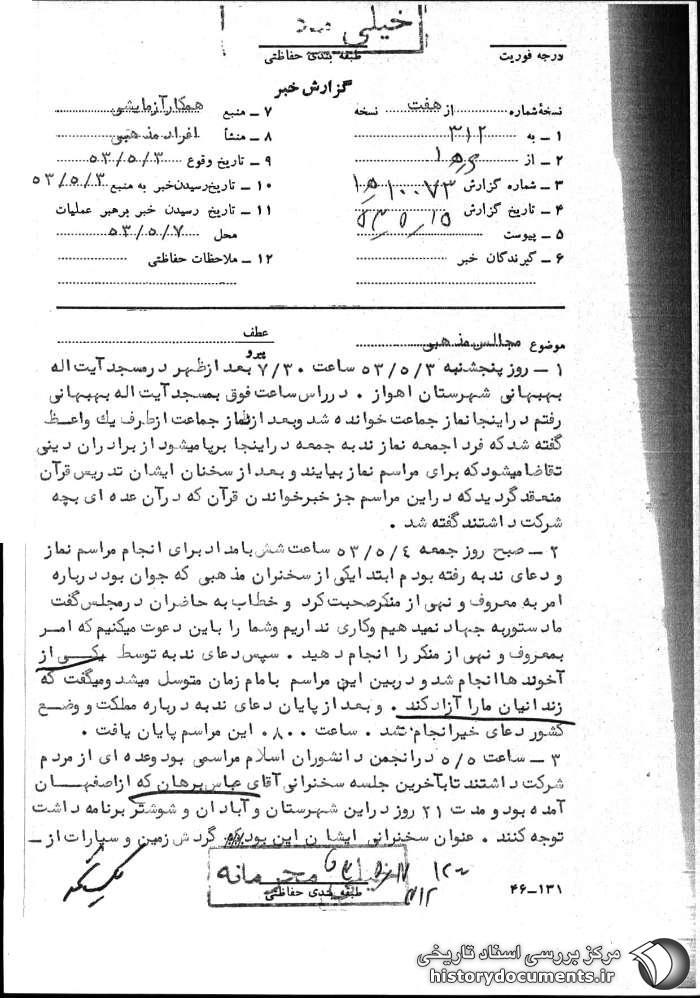 خیلی
درجه فوریت
طبقه بندی حفاظتی
گزارش خبر
نسخهٔ شماره ........ از هفت ........ نسخه
۱ ـ به ۳۱۲
۲ ـ از ۱۵۶
۳ ـ شماره گزارش ۱۵ ۱۰۰۷۳
۴ ـ تاریخ گزارش ۵۳،۵،۱۵
۵ ـ پیوست
۶ ـ گیرندگان خبر
۷ ـ منبع همکار آزمایشی
۸ ـ منشأ افراد مذهبی
۹ ـ تاریخ وقوع ۵۳/۵/۳
۱۰ ـ تاریخ رسیدن خبر به منبع ۵۳/۵/۳
۱۱ ـ تاریخ رسیدن خبر برهبر عملیات
محل ۵۳/۵/۷
۱۲ ـ ملاحظات حفاظتی
موضوع مجالس مذهبی
عطف
پیرو
۱ ـ روز پنجشنبه ۵۳/۵/۳ ساعت ۷/۳۰ بعد از ظهر در مسجد آیت اله
بهبهانی شهرستان اهواز . در راس ساعت فوق بمسجد آیت اله بهبهانی
رفتم در اینجا نماز جماعت خوانده شد و بعد از نماز جماعت از طرف یك واعظ
گفته شد که فردا جمعه نماز ندبه جمعه در اینجا برپا میشود از برادران دینی
تقاضا میشود که برای مراسم نماز بیایند و بعد از سخنان ایشان تدریس قرآن
منعقد گردید که در این مراسم جز خبر خواندن قرآن که در آن عده ای بچه
شرکت داشتند گفته شد .
۲ ـ صبح روز جمعه ۵۳/۵/۴ ساعت شش بامداد برای انجام مراسم نماز
و دعای ندبه رفته بودم ابتدا یکی از سخنران مذهبی که جوان بود درباره
امر به معروف و نهی از منکر صحبت کرد و خطاب به حاضران در مجلس گفت
ما دستور به جهاد نمیدهیم وکاری نداریم وشما را باین دعوت میکنیم که امر
بمعروف و نهی از منکر را انجام دهید . سپس دعای ندبه توسط یکی از
آخوند ها انجام شد و در بین این مراسم بامام زمان متوسل میشد و میگفت که
زندانیان ما را آزاد کند . و بعد از پایان دعای ندبه درباره مملکت و وضع
کشور دعای خیر انجام شد . ساعت ۰۸۰۰ این مراسم پایان یافت .
۳ ـ ساعت ۵/۵ در انجمن دانشوران اسلام مراسمی بود و عده ای از مردم
شرکت داشتند تا بآخرین جلسه سخنرانی آقای عباس برهان که از اصفهان
آمده بود و مدت ۲۱ روز در این شهرستان و آبادان و شوشتر برنامه داشت
توجه کنند . عنوان سخنرانی ایشان این بود که گردش زمین و سیارات از ـ
خیلی محرمانه
طبقه بندی حفاظتی
۳۱۲
۴۶-۱۳۱
مرکز بررسی اسناد تاریخی
historydocuments.ir